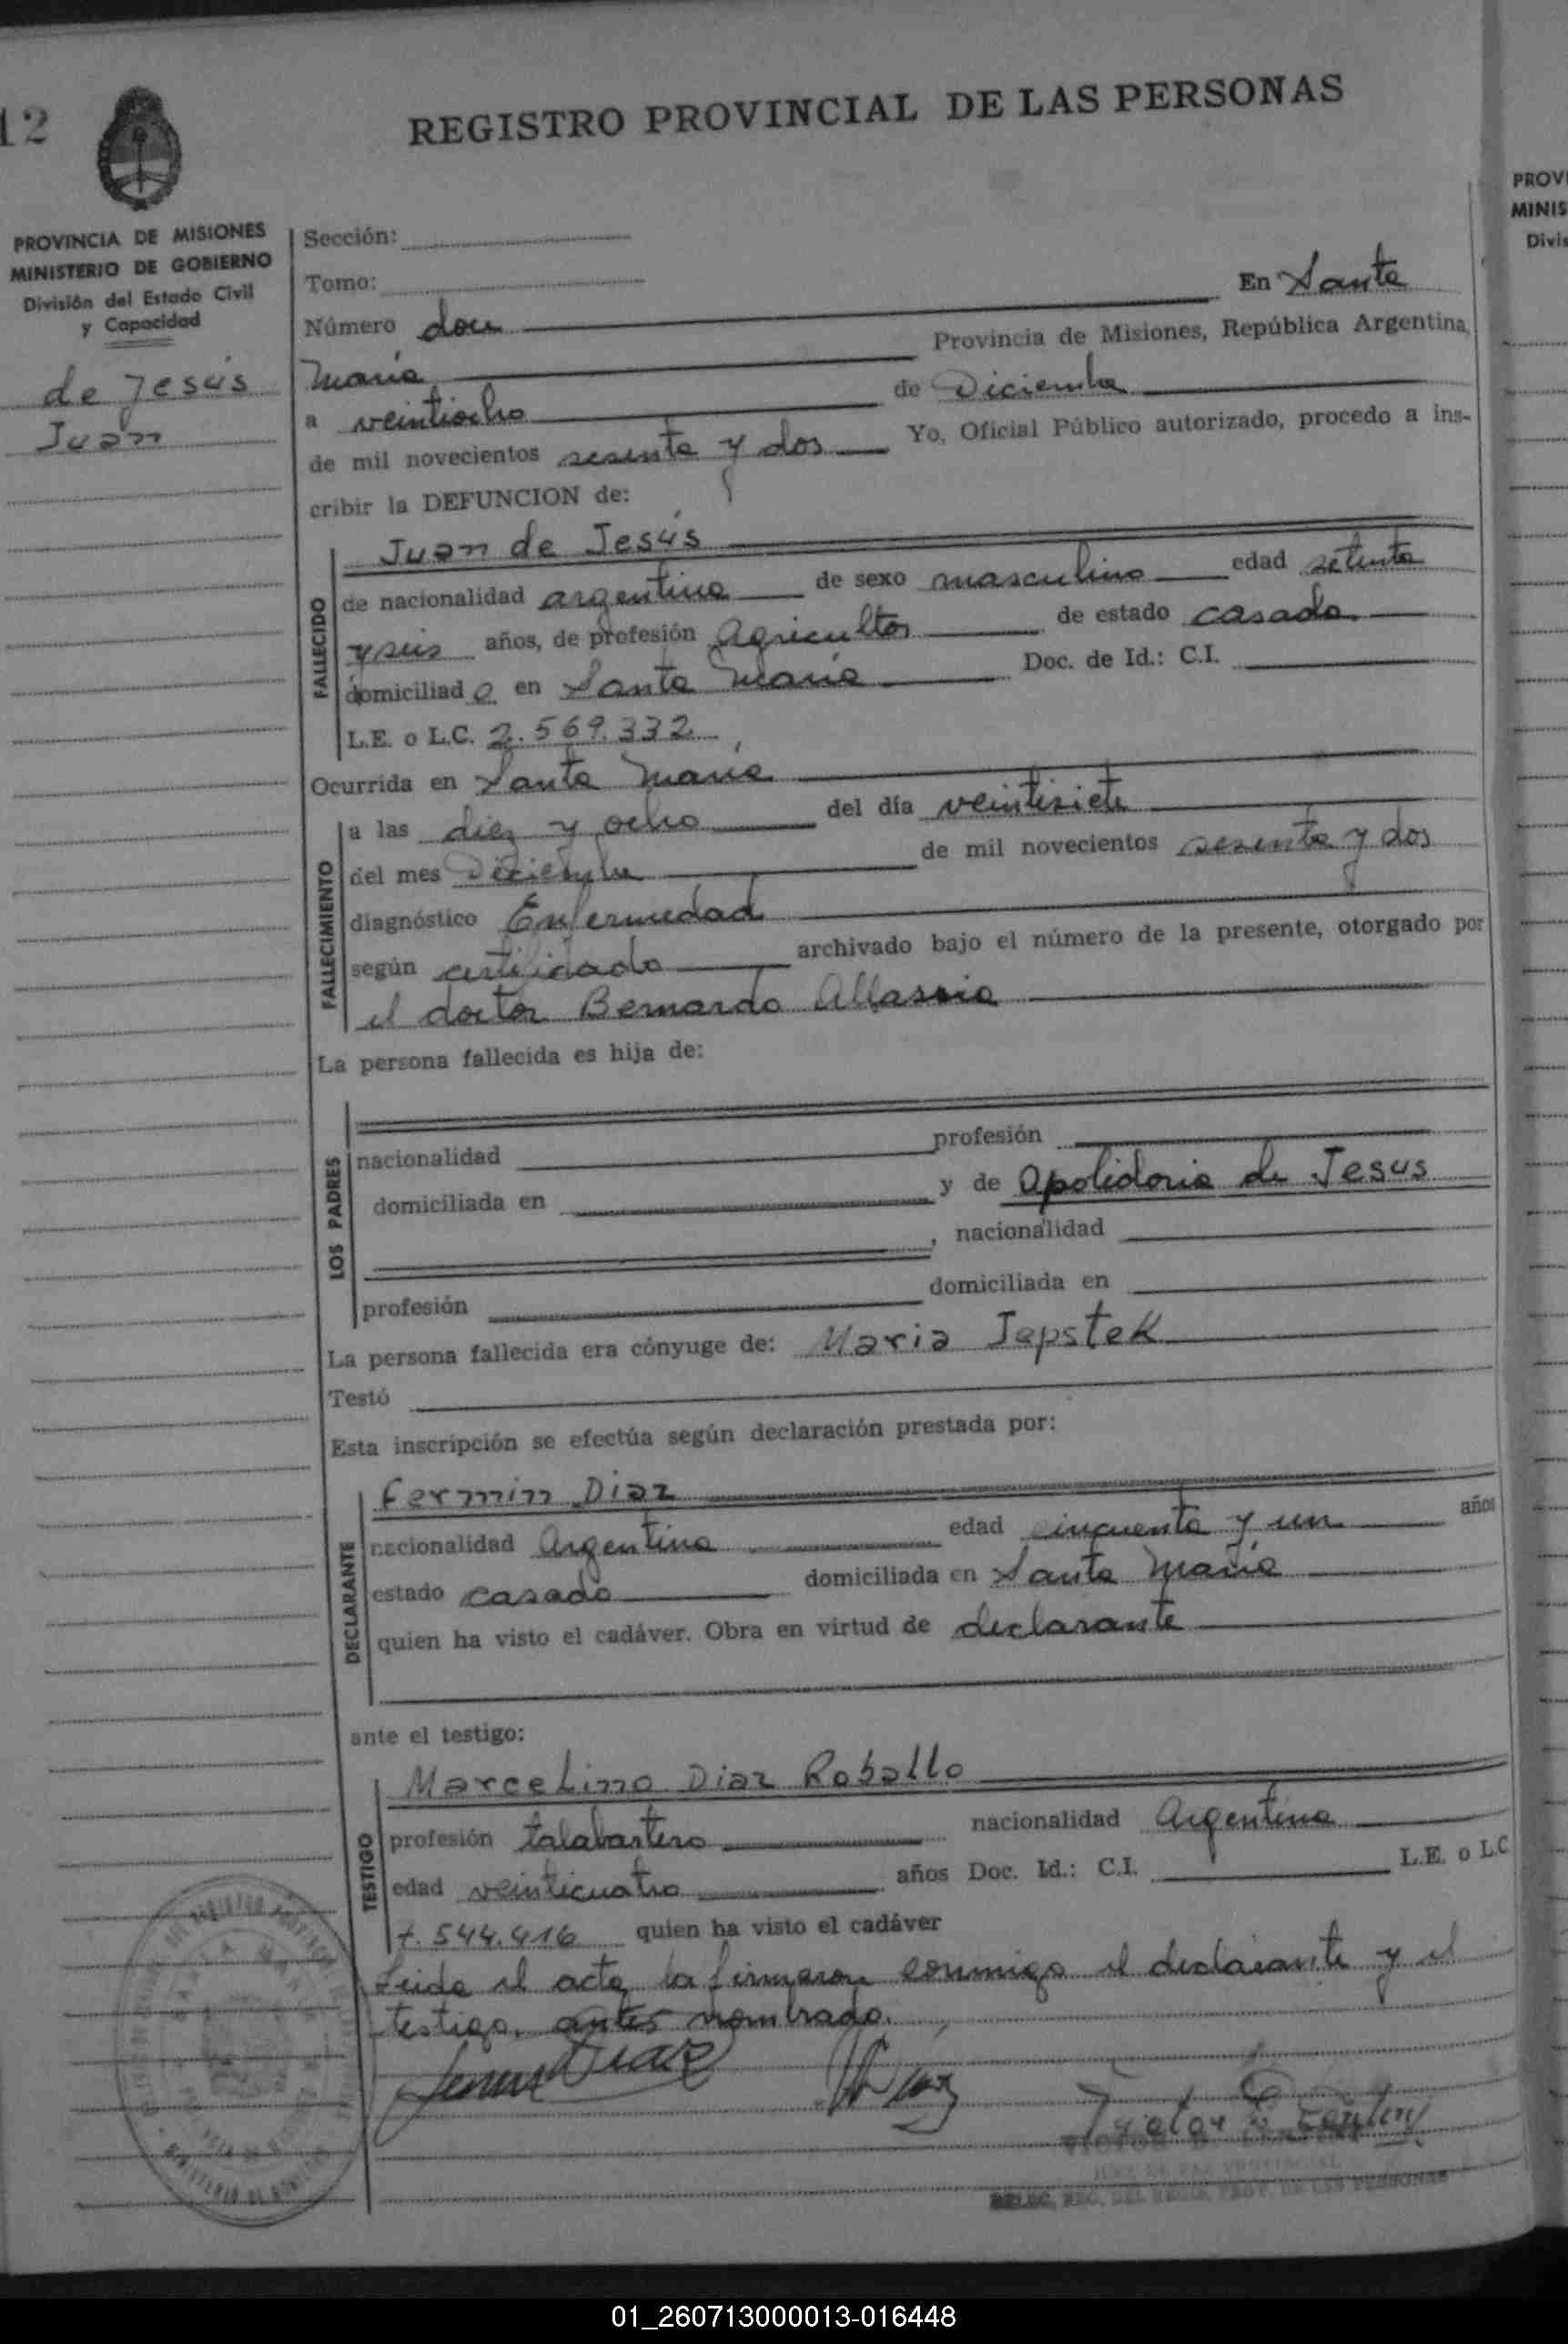 12
REGISTRO PROVINCIAL DE LAS PERSONAS
PROVINCIA DE MISIONES
MINISTERIO DE GOBIERNO
División del Estado Civil
y Capacidad
de Jesús
Juan
Sección:
Tomo:
Número doce En Santa
María Provincia de Misiones, República Argentina,
a veintiocho de Diciembre
de mil novecientos sesenta y dos Yo, Oficial Público autorizado, procedo a ins-
cribir la DEFUNCION de:
FALLECIDO
Juan de Jesús
de nacionalidad argentina de sexo masculino edad setenta
y seis años, de profesión Agricultor de estado casado
domiciliado en Santa María Doc. de Id.: C.I.
L.E. o L.C. 2.569.332
Ocurrida en Santa María
FALLECIMIENTO
a las diez y ocho del día veintisiete
del mes Diciembre de mil novecientos sesenta y dos
diagnóstico Enfermedad
según certificado archivado bajo el número de la presente, otorgado por
el doctor Bernardo Allassia
La persona fallecida es hija de:
LOS PADRES
nacionalidad profesión
domiciliada en y de Apolidoria de Jesus
, nacionalidad
profesión domiciliada en
La persona fallecida era cónyuge de: Maria Japstek
Testó
Esta inscripción se efectúa según declaración prestada por:
DECLARANTE
Fermin Diaz
nacionalidad Argentina edad cincuenta y un años
estado casado domiciliada en Santa María
quien ha visto el cadáver. Obra en virtud de declarante
ante el testigo:
TESTIGO
Marcelino Diaz Roballo
profesión talabartero nacionalidad Argentina
edad veinticuatro años Doc. Id.: C.I. L.E. o L.C
7.544.416 quien ha visto el cadáver
Leida el acta la firmaron conmigo el declarante y el
testigo, antes nombrado.
PROVI
MINIS
Divis
01_260713000013-016448